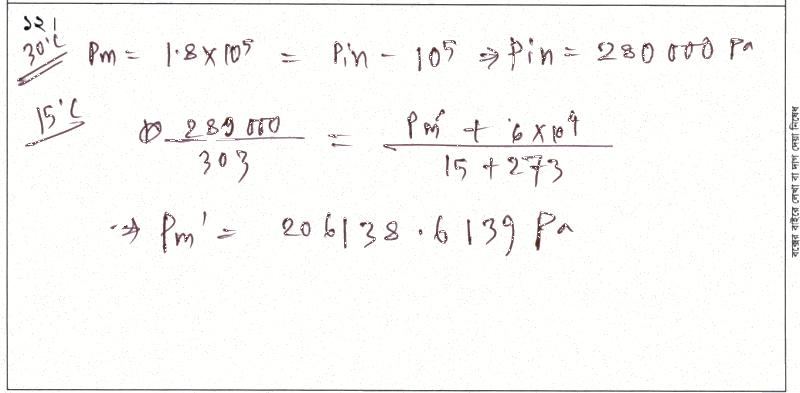 ১২।
30°C Pm = 1.8 × 10⁵ = Pin - 10⁵ ⇒ Pin = 280 000 Pa
15°C 289 000 / 303 = Pm' + 6 × 10⁴ / 15 + 273
⇒ Pm' = 206138.6139 Pa
বক্সের বাইরে লেখা বা দাগ দেয়া নিষেধ